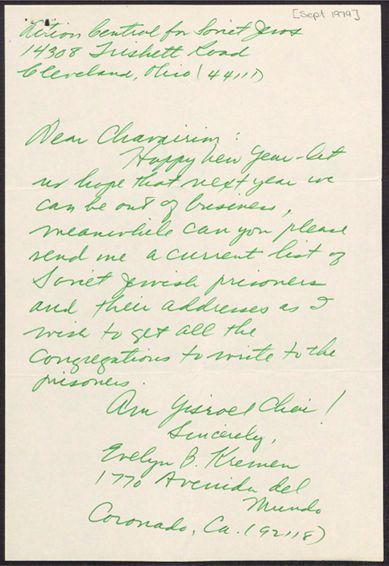 [Sept 1979]
Action Central for Soviet Jews
14308 Triskett Road
Cleveland, Ohio (44111)
Dear Chavairim:
Happy New Year - let
us hope that next year we
can be out of business,
meanwhile can you please
send me a current list of
Soviet Jewish prisoners
and their addresses as I
wish to get all the
Congregations to write to the
prisoners.
Am Yisroel Chai!
Sincerely,
Evelyn B. Kremen
1770 Avenida del
Mundo
Coronado, Ca. (92118)